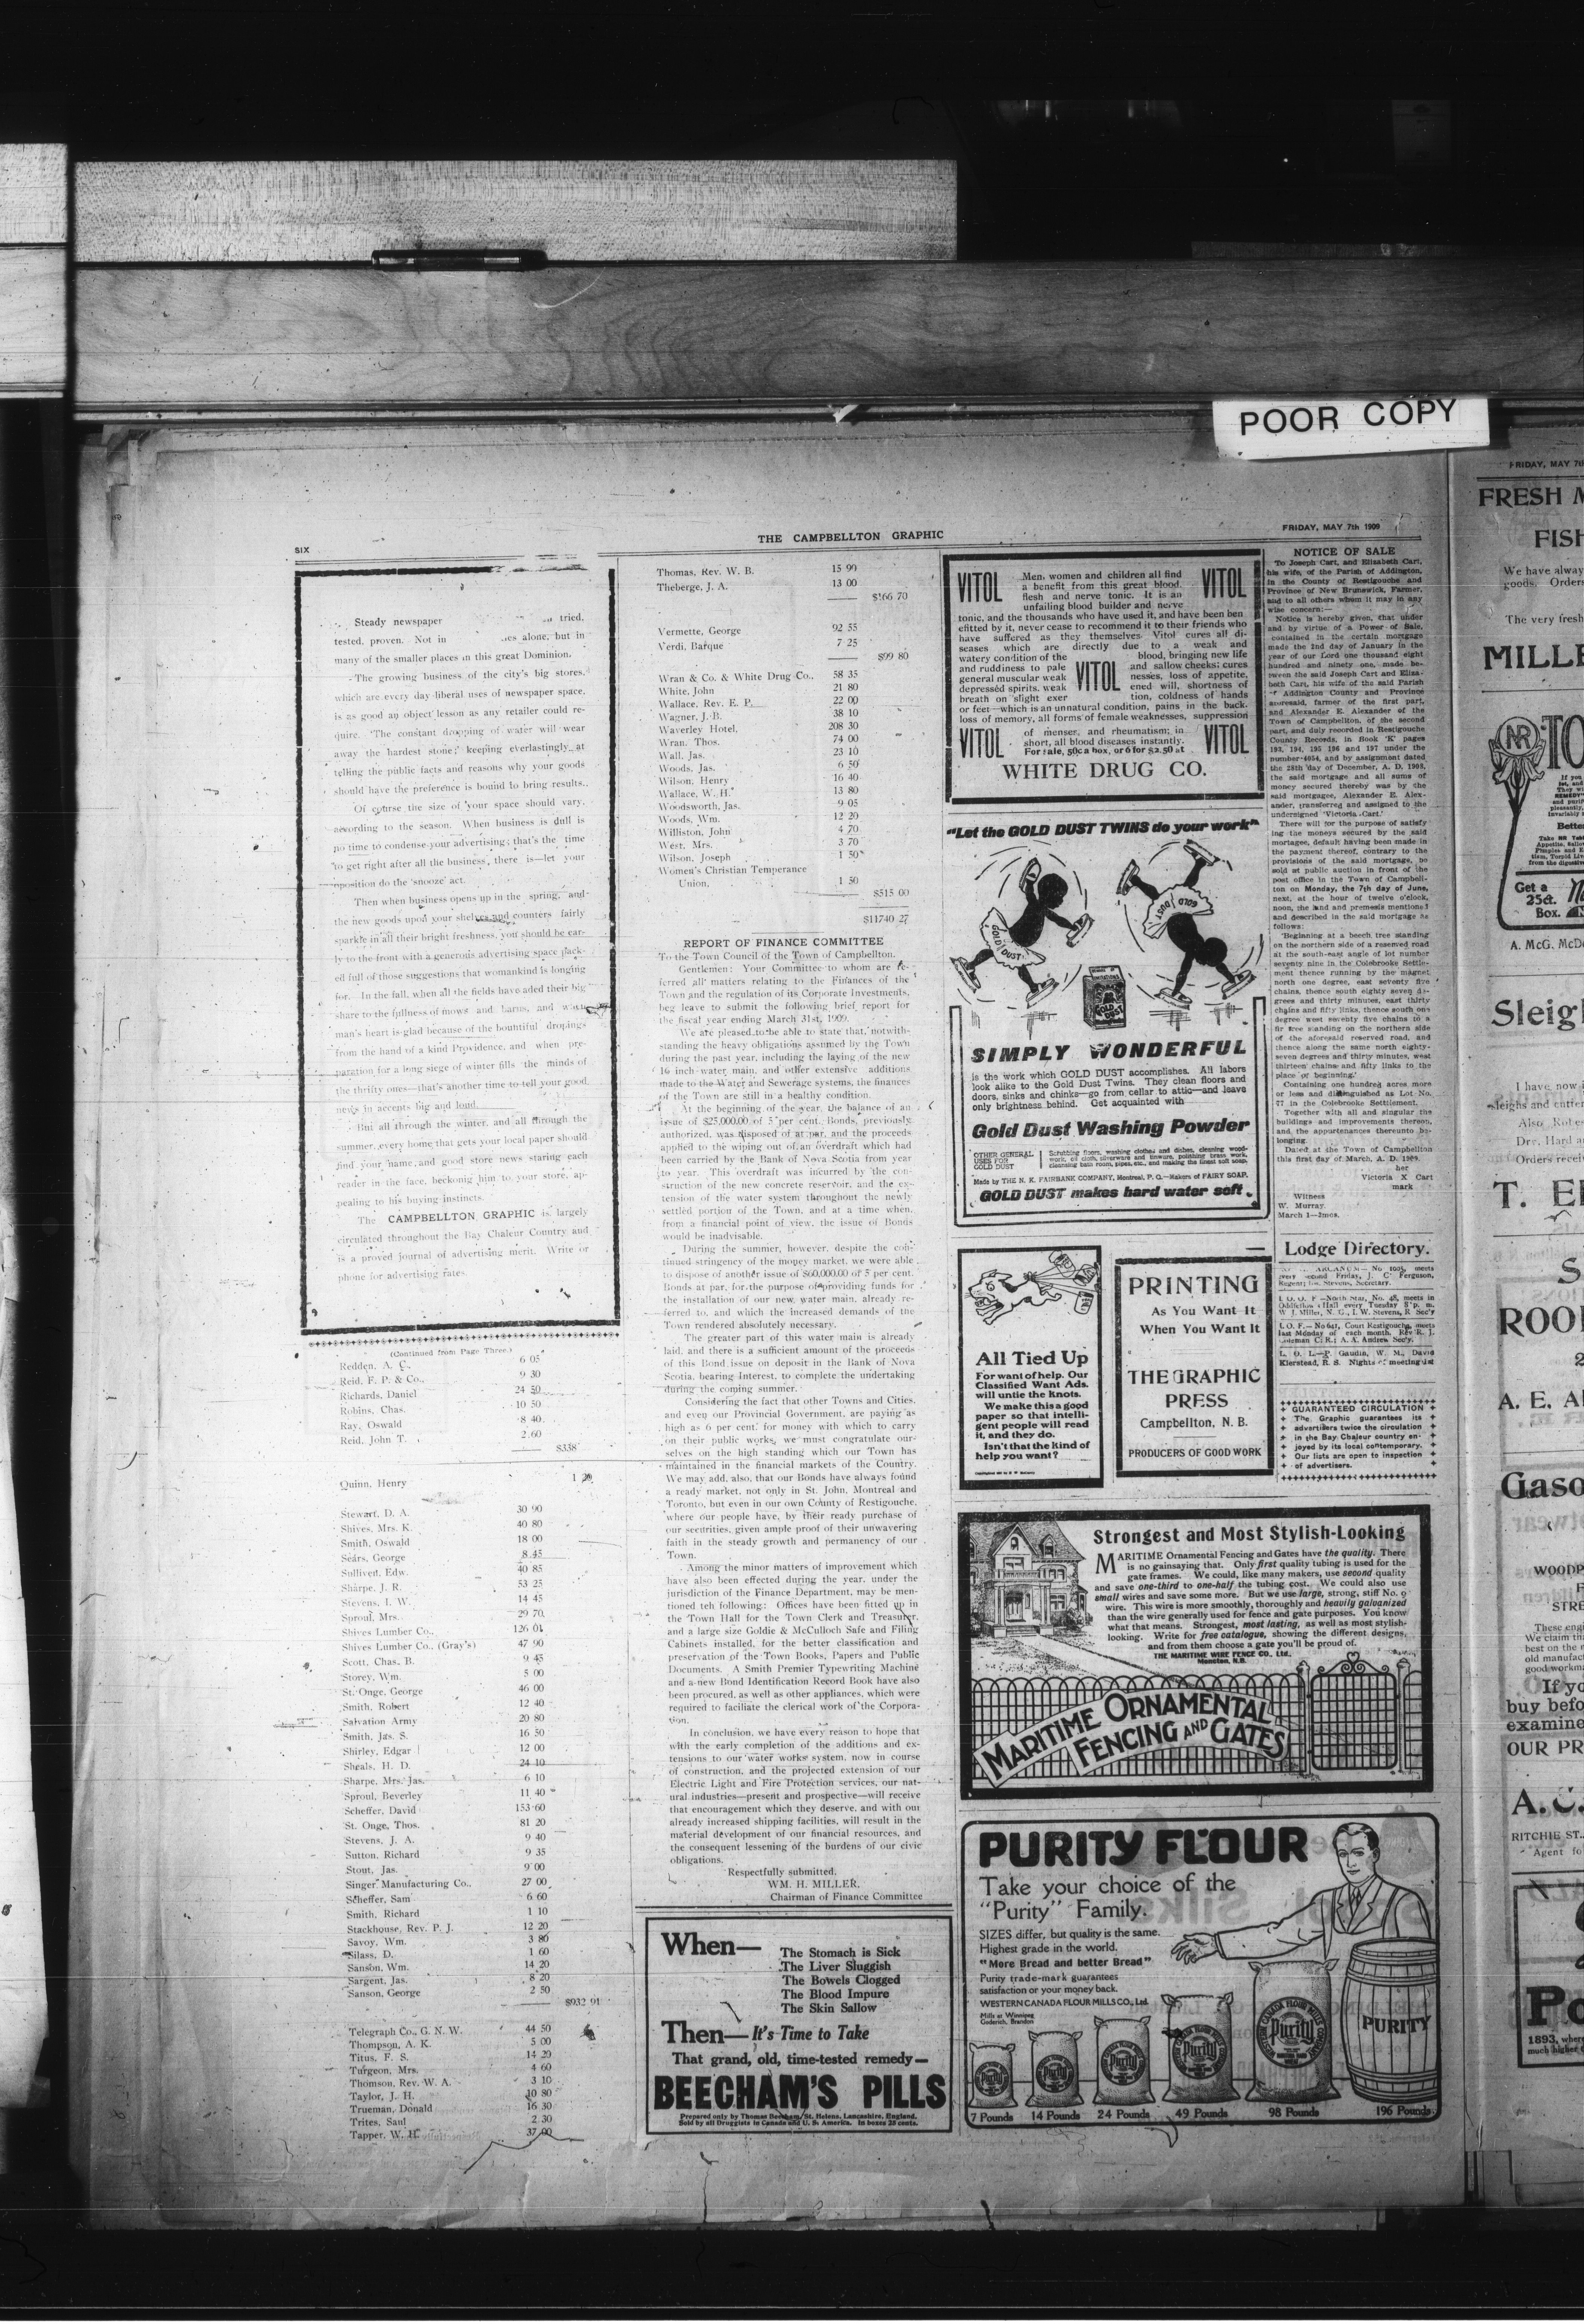 POOR COPY
SIX
THE CAMPBELLTON GRAPHIC
FRIDAY, MAY 7th 1909
Steady newspaper tried,
tested, proven. Not in alone, but in
many of the smaller places in this great Dominion.
The growing business of the city's big stores,
which are every day liberal uses of newspaper space,
is as good an object lesson as any retailer could re-
quire. 'The constant dropping of water will wear
away the hardest stone;' keeping everlastingly at
telling the public facts and reasons why your goods
should have the preference is bound to bring results.
Of course the size of your space should vary,
according to the season. When business is dull is
no time to condense your advertising; that's the time
to get right after all the business, there is—let your
opposition do the 'snooze' act.
Then when business opens up in the spring, and
the new goods upon your shelves and counters fairly
sparkle in all their bright freshness, you should be ear-
ly to the front with a generous advertising space pack-
ed full of those suggestions that womankind is longing
for. In the fall, when all the fields have aded their big
share to the fullness of mows and barns, and
man's heart is glad because of the bountiful dropings
from the hand of a kind Providence, and when pre-
paration for a long siege of winter fills the minds of
the thrifty ones—that's another time to tell your good
news in accents big and loud.
But all through the winter, and all through the
summer, every home that gets your local paper should
find your name, and good store news staring each
reader in the face, beckonig him to your store, ap-
pealing to his buying instincts.
The CAMPBELLTON GRAPHIC is largely
circulated throughout the Bay Chaleur Country and
is a proved journal of advertising merit. Write or
phone for advertising rates.
(Continued from Page Three.)
Redden, A. C., 6 05
Reid, F. P. & Co., 9 30
Richards, Daniel 24 50
Robins, Chas. 10 50
Ray, Oswald 8 40
Reid, John T. 2.60
$338
Quinn, Henry 1 20
Stewart, D. A. 30 90
Shives, Mrs. K. 40 80
Smith, Oswald 18 00
Sears, George 8 45
Sulliven, Edw. 40 85
Sharpe, J. R. 53 25
Stevens, I. W. 14 45
Sproul, Mrs. 29 70
Shives Lumber Co., 126 01
Shives Lumber Co., (Gray's) 47 90
Scott, Chas. B. 9 45
Storey, Wm. 5 00
St. Onge, George 46 00
Smith, Robert 12 40
Salvation Army 20 80
Smith, Jas. S. 16 50
Shirley, Edgar 12 00
Sheals, H. D. 24 10
Sharpe, Mrs. Jas. 6 10
Sproul, Beverley 11 40
Scheffer, David 153 60
St. Onge, Thos. 81 20
Stevens, J. A. 9 40
Sutton, Richard 9 35
Stout, Jas. 9 00
Singer Manufacturing Co., 27 00
Scheffer, Sam 6 60
Smith, Richard 1 10
Stackhouse, Rev. P. J. 12 20
Savoy, Wm. 3 80
Silass, D. 1 60
Sanson, Wm. 14 20
Sargent, Jas. 8 20
Sanson, George 2 50
$932 91
Telegraph Co., G. N. W. 44 50
Thompson, A. K. 5 00
Titus, F. S. 14 20
Turgeon, Mrs. 4 60
Thomson, Rev. W. A. 3 10
Taylor, J. H. 10 80
Trueman, Donald 16 30
Trites, Saul 2 30
Tapper, W. H. 37 00
Thomas, Rev. W. B. 15 90
Theberge, J. A. 13 00
$166 70
Vermette, George 92 55
Verdi, Barque 7 25
$99 80
Wran & Co. & White Drug Co., 58 35
White, John 21 80
Wallace, Rev. E. P. 22 00
Wagner, J. B. 38 10
Waverley Hotel, 208 30
Wran, Thos. 74 00
Wall, Jas. 23 10
Woods, Jas. 6 50
Wilson, Henry 16 40
Wallace, W. H. 13 80
Woodsworth, Jas. 9 05
Woods, Wm. 12 20
Williston, John 4 70
West, Mrs. 3 70
Wilson, Joseph 1 50
Women's Christian Temperance
Union, 1 50
$515 00
$11740 27
REPORT OF FINANCE COMMITTEE
To the Town Council of the Town of Campbellton.
Gentlemen: Your Committee to whom are re-
ferred all matters relating to the Finances of the
Town and the regulation of its Corporate Investments,
beg leave to submit the following brief report for
the fiscal year ending March 31st, 1909.
We are pleased to be able to state that, notwith-
standing the heavy obligations assumed by the Town
during the past year, including the laying of the new
16 inch water main, and other extensive additions
made to the Water and Sewerage systems, the finances
of the Town are still in a healthy condition.
At the beginning of the year, the balance of an
issue of $25,000.00 of 5 per cent. Bonds, previously
authorized, was disposed of at par, and the proceeds
applied to the wiping out of an overdraft which had
been carried by the Bank of Nova Scotia from year
to year. This overdraft was incurred by the con-
struction of the new concrete reservoir, and the ex-
tension of the water system throughout the newly
settled portion of the Town, and at a time when,
from a financial point of view, the issue of Bonds
would be inadvisable.
During the summer, however, despite the con-
tinued stringency of the money market, we were able
to dispose of another issue of $60,000.00 of 5 per cent.
Bonds at par, for the purpose of providing funds for
the installation of our new water main, already re-
ferred to, and which the increased demands of the
Town rendered absolutely necessary.
The greater part of this water main is already
laid, and there is a sufficient amount of the proceeds
of this Bond issue on deposit in the Bank of Nova
Scotia, bearing Interest, to complete the undertaking
during the coming summer.
Considering the fact that other Towns and Cities,
and even our Provincial Government, are paying as
high as 6 per cent. for money with which to carry
on their public works, we must congratulate our-
selves on the high standing which our Town has
maintained in the financial markets of the Country.
We may add, also, that our Bonds have always found
a ready market, not only in St. John, Montreal and
Toronto, but even in our own County of Restigouche,
where our people have, by their ready purchase of
our securities, given ample proof of their unwavering
faith in the steady growth and permanency of our
Town.
Among the minor matters of improvement which
have also been effected during the year, under the
jurisdiction of the Finance Department, may be men-
tioned teh following: Offices have been fitted up in
the Town Hall for the Town Clerk and Treasurer,
and a large size Goldie & McCulloch Safe and Filing
Cabinets installed, for the better classification and
preservation of the Town Books, Papers and Public
Documents. A Smith Premier Typewriting Machine
and a new Bond Identification Record Book have also
been procured, as well as other appliances, which were
required to faciliate the clerical work of the Corpora-
tion.
In conclusion, we have every reason to hope that
with the early completion of the additions and ex-
tensions to our water works system, now in course
of construction, and the projected extension of our
Electric Light and Fire Protection services, our nat-
ural industries—present and prospective—will receive
that encouragement which they deserve, and with our
already increased shipping facilities, will result in the
material development of our financial resources, and
the consequent lessening of the burdens of our civic
obligations.
Respectfully submitted,
WM. H. MILLER,
Chairman of Finance Committee
When—
The Stomach is Sick
The Liver Sluggish
The Bowels Clogged
The Blood Impure
The Skin Sallow
Then—It's Time to Take
That grand, old, time-tested remedy—
BEECHAM'S PILLS
Prepared only by Thomas Beecham, St. Helens, Lancashire, England.
Sold by all Druggists in Canada and U. S. America. In boxes 25 cents.
VITOL VITOL
Men, women and children all find
a benefit from this great blood,
flesh and nerve tonic. It is an
unfailing blood builder and nerve
tonic, and the thousands who have used it, and have been ben
efitted by it, never cease to recommend it to their friends who
have suffered as they themselves. Vitol cures all di-
seases which are directly due to a weak and
watery condition of the blood, bringing new life
and ruddiness to pale and sallow cheeks; cures
general muscular weak VITOL nesses, loss of appetite,
depressed spirits, weak ened will, shortness of
breath on slight exer tion, coldness of hands
or feet—which is an unnatural condition, pains in the back,
loss of memory, all forms of female weaknesses, suppression
of menser, and rheumatism; in
short, all blood diseases instantly.
For sale, 50c a box, or 6 for $2.50 at
VITOL VITOL
WHITE DRUG CO.
"Let the GOLD DUST TWINS do your work"
GOLD DUST
GOLD DUST
GOLD DUST
SIMPLY WONDERFUL
is the work which GOLD DUST accomplishes. All labors
look alike to the Gold Dust Twins. They clean floors and
doors, sinks and chinks—go from cellar to attic—and leave
only brightness behind. Get acquainted with
Gold Dust Washing Powder
OTHER GENERAL USES FOR GOLD DUST
Scrubbing floors, washing clothes and dishes, cleaning wood-
work, oil cloth, silverware and tinware, polishing brass work,
cleansing bath room, pipes, etc., and making the finest soft soap.
Made by THE N. K. FAIRBANK COMPANY, Montreal, P. Q.—Makers of FAIRY SOAP.
GOLD DUST makes hard water soft
All Tied Up
For want of help. Our
Classified Want Ads.
will untie the knots.
We make this a good
paper so that intelli-
gent people will read
it, and they do.
Isn't that the kind of
help you want?
PRINTING
As You Want It
When You Want It
THE GRAPHIC
PRESS
Campbellton, N. B.
PRODUCERS OF GOOD WORK
Strongest and Most Stylish-Looking
MARITIME Ornamental Fencing and Gates have the quality. There
is no gainsaying that. Only first quality tubing is used for the
gate frames. We could, like many makers, use second quality
and save one-third to one-half the tubing cost. We could also use
small wires and save some more. But we use large, strong, stiff No. 9
wire. This wire is more smoothly, thoroughly and heavily galvanized
than the wire generally used for fence and gate purposes. You know
what that means. Strongest, most lasting, as well as most stylish-
looking. Write for free catalogue, showing the different designs,
and from them choose a gate you'll be proud of.
THE MARITIME WIRE FENCE CO., Ltd.
Moncton, N.B.
MARITIME ORNAMENTAL
FENCING AND GATES
PURITY FLOUR
Take your choice of the
"Purity" Family.
SIZES differ, but quality is the same.
Highest grade in the world.
"More Bread and better Bread"
Purity trade-mark guarantees
satisfaction or your money back.
WESTERN CANADA FLOUR MILLS CO., Ltd.
Mills at Winnipeg
Goderich, Brandon
Purity Purity Purity Purity Purity PURITY
7 Pounds 14 Pounds 24 Pounds 49 Pounds 98 Pounds 196 Pounds
NOTICE OF SALE
To Joseph Cart, and Elisabeth Cart,
his wife, of the Parish of Addington,
in the County of Restigouche and
Province of New Brunswick, Farmer,
and to all others whom it may in any
wise concern:—
Notice is hereby given, that under
and by virtue of a Power of Sale,
contained in the certain mortgage
made the 2nd day of January in the
year of our Lord one thousand eight
hundred and ninety one, made be-
tween the said Joseph Cart and Eliza-
beth Cart, his wife of the said Parish
of Addington County and Province
aforesaid, farmer of the first part,
and Alexander E. Alexander of the
Town of Campbellton, of the second
part, and duly recorded in Restigouche
County Records, in Book 'K' pages
193, 194, 195 196 and 197 under the
number 4054, and by assignment dated
the 28th day of December, A. D. 1908,
the said mortgage and all sums of
money secured thereby was by the
said mortgagee, Alexander E. Alex-
ander, transferred and assigned to the
undersigned 'Victoria Cart.'
There will for the purpose of satisfy
ing the moneys secured by the said
mortagee, default having been made in
the payment thereof, contrary to the
provisions of the said mortgage, be
sold at public auction in front of the
post office in the Town of Campbell-
ton on Monday, the 7th day of June,
next, at the hour of twelve o'clock,
noon, the land and premesis mentioned
and described in the said mortgage as
follows:
'Beginning at a beech tree standing
on the northern side of a reserved road
at the south-east angle of lot number
seventy nine in the Colebrooke Settle-
ment thence running by the magnet
north one degree, east seventy five
chains, thence south eighty seven de-
grees and thirty minutes, east thirty
chains and fifty links, thence south one
degree west seventy five chains to a
fir tree standing on the northern side
of the aforesaid reserved road, and
thence along the same north eighty-
seven degrees and thirty minutes, west
thirteen chains and fifty links to the
place of beginning.'
Containing one hundred acres more
or less and distinguished as Lot No.
77 in the Colebrooke Settlement.
Together with all and singular the
buildings and improvements thereon,
and the appurtenances thereunto be-
longing.
Dated at the Town of Campbellton
this first day of March, A. D. 1909.
her
Victoria X Cart
mark
Witness
W. Murray.
March 1—2mos.
Lodge Directory.
ARCANUM— No 1005, meets
every second Friday, J. C. Ferguson,
Regent; Jas. Stevens, Secretary.
I. O. O. F —North Star, No. 48, meets in
Oddfellows Hall every Tuesday 8 p. m.
W J. Miller, N. G., I. W. Stevens, R Sec'y
I. O. F.— No 641, Court Restigouche, meets
last Monday of each month. Rev R. J.
Coleman C. R.; A. A. Andrew Sec'y.
L. O. L—P. Gaudin, W. M., David
Kierstead, R. S. Nights of meeting 1st
GUARANTEED CIRCULATION
The Graphic guarantees its
advertisers twice the circulation
in the Bay Chaleur country en-
joyed by its local contemporary.
Our lists are open to inspection
of advertisers.
FRIDAY, MAY 7th
FRESH
FISH
We have alway
goods. Orders
The very fresh
MILLE
NR
Get a
25ct.
Box.
A. McG. McDo
Sleigh
I have now
sleighs and cutter
Also
Dry, Hard
Orders recei
T.
ROO
A. E.
Gaso
WOODP
STRE
These eng
We claim th
best on the
old manufact
good workma
If yo
buy befo
examine
OUR PR
A.
RITCHIE ST.
Agent fo
Po
1893, where
much higher